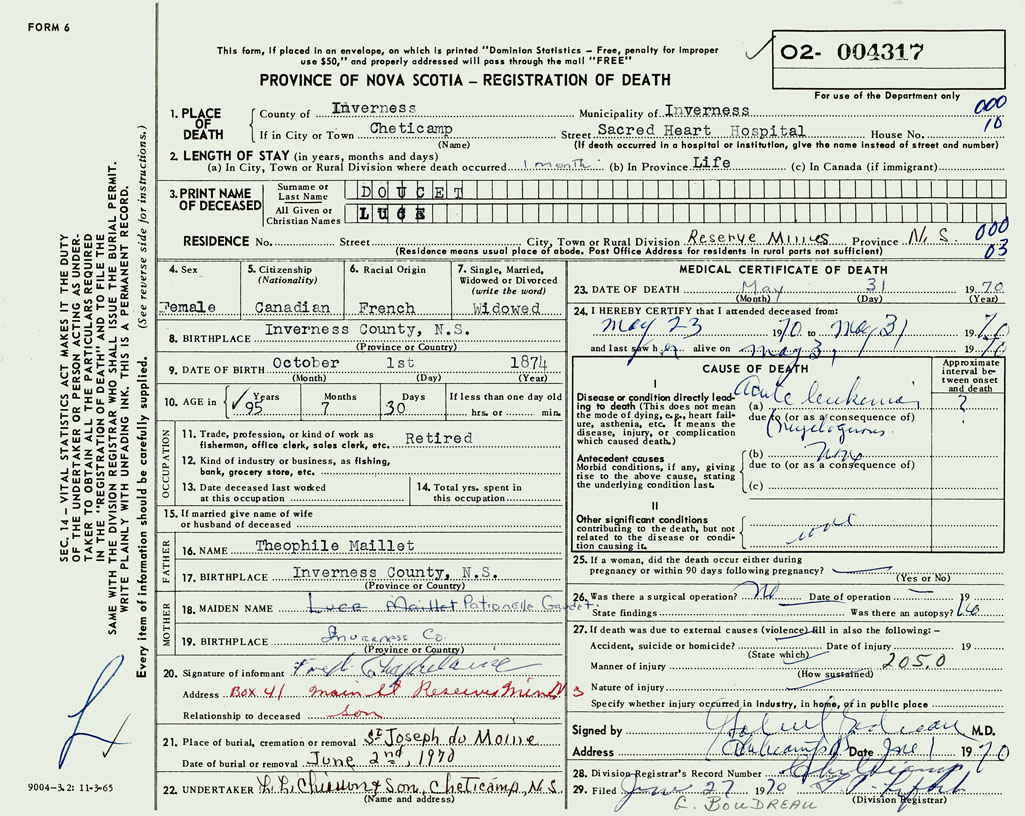 FORM 6
This form, if placed in an envelope, on which is printed "Dominion Statistics – Free, penalty for improper
use $50," and properly addressed will pass through the mail "FREE"
PROVINCE OF NOVA SCOTIA – REGISTRATION OF DEATH
O2- 004317
For use of the Department only
SEC. 14 – VITAL STATISTICS ACT MAKES IT THE DUTY
OF THE UNDERTAKER OR PERSON ACTING AS UNDER-
TAKER TO OBTAIN ALL THE PARTICULARS REQUIRED
IN THE "REGISTRATION OF DEATH" AND TO FILE THE
SAME WITH THE DIVISION REGISTRAR WHO SHALL ISSUE THE BURIAL PERMIT.
WRITE PLAINLY WITH UNFADING INK. THIS IS A PERMANENT RECORD.
Every item of information should be carefully supplied. (See reverse side for instructions.)
1. PLACE OF DEATH
County of Inverness Municipality of Inverness 000
If in City or Town Cheticamp Street Sacred Heart Hospital House No. 10
(Name) (If death occurred in a hospital or institution, give the name instead of street and number)
2. LENGTH OF STAY (in years, months and days)
(a) In City, Town or Rural Division where death occurred 1 month (b) In Province Life (c) In Canada (if immigrant)
3. PRINT NAME OF DECEASED
Surname or Last Name DOUCET
All Given or Christian Names LUCE
RESIDENCE No. Street City, Town or Rural Division Reserve Mines Province N.S. 000
(Residence means usual place of abode. Post Office Address for residents in rural parts not sufficient) 03
4. Sex
Female
5. Citizenship (Nationality)
Canadian
6. Racial Origin
French
7. Single, Married, Widowed or Divorced (write the word)
Widowed
8. BIRTHPLACE Inverness County, N.S.
(Province or Country)
9. DATE OF BIRTH October 1st 1874
(Month) (Day) (Year)
10. AGE in Years 95 Months 7 Days 30 If less than one day old
hrs. or min.
OCCUPATION
11. Trade, profession, or kind of work as
fisherman, office clerk, sales clerk, etc. Retired
12. Kind of industry or business, as fishing,
bank, grocery store, etc.
13. Date deceased last worked
at this occupation
14. Total yrs. spent in
this occupation
15. If married give name of wife
or husband of deceased
FATHER
16. NAME Theophile Maillet
17. BIRTHPLACE Inverness County, N.S.
(Province or Country)
MOTHER
18. MAIDEN NAME Luce Maillet Gaudet
19. BIRTHPLACE Inverness Co.
(Province or Country)
20. Signature of informant Fred
Address Box 41 Main St Reserve Mines N S
Relationship to deceased son
21. Place of burial, cremation or removal St Joseph du Moine
Date of burial or removal June 2nd, 1970
22. UNDERTAKER L.L. Chiasson & Son, Cheticamp, N.S.
(Name and address)
MEDICAL CERTIFICATE OF DEATH
23. DATE OF DEATH May 31 1970
(Month) (Day) (Year)
24. I HEREBY CERTIFY that I attended deceased from:
May 23 1970 to May 31 1970
and last saw her alive on May 31 1970
CAUSE OF DEATH
Approximate interval between onset and death
I
Disease or condition directly lead-
ing to death (This does not mean
the mode of dying, e.g., heart fail-
ure, asthenia, etc. It means the
disease, injury, or complication
which caused death.)
(a) Acute leukemia ?
due to (or as a consequence of)
Antecedent causes
Morbid conditions, if any, giving
rise to the above cause, stating
the underlying condition last.
(b) none
due to (or as a consequence of)
(c)
II
Other significant conditions
contributing to the death, but not
related to the disease or condi-
tion causing it.
none
25. If a woman, did the death occur either during
pregnancy or within 90 days following pregnancy?
(Yes or No)
26. Was there a surgical operation? No Date of operation 19
State findings Was there an autopsy? No
27. If death was due to external causes (violence) fill in also the following: –
Accident, suicide or homicide? Date of injury 19
(State which)
Manner of injury 205.0
(How sustained)
Nature of injury
Specify whether injury occurred in industry, in home, or in public place
Signed by M.D.
Address Cheticamp Date June 1 1970
28. Division Registrar's Record Number
29. Filed June 27 1970
(Division Registrar)
G. BOUDREAU
9004-3.2: 11-3-65